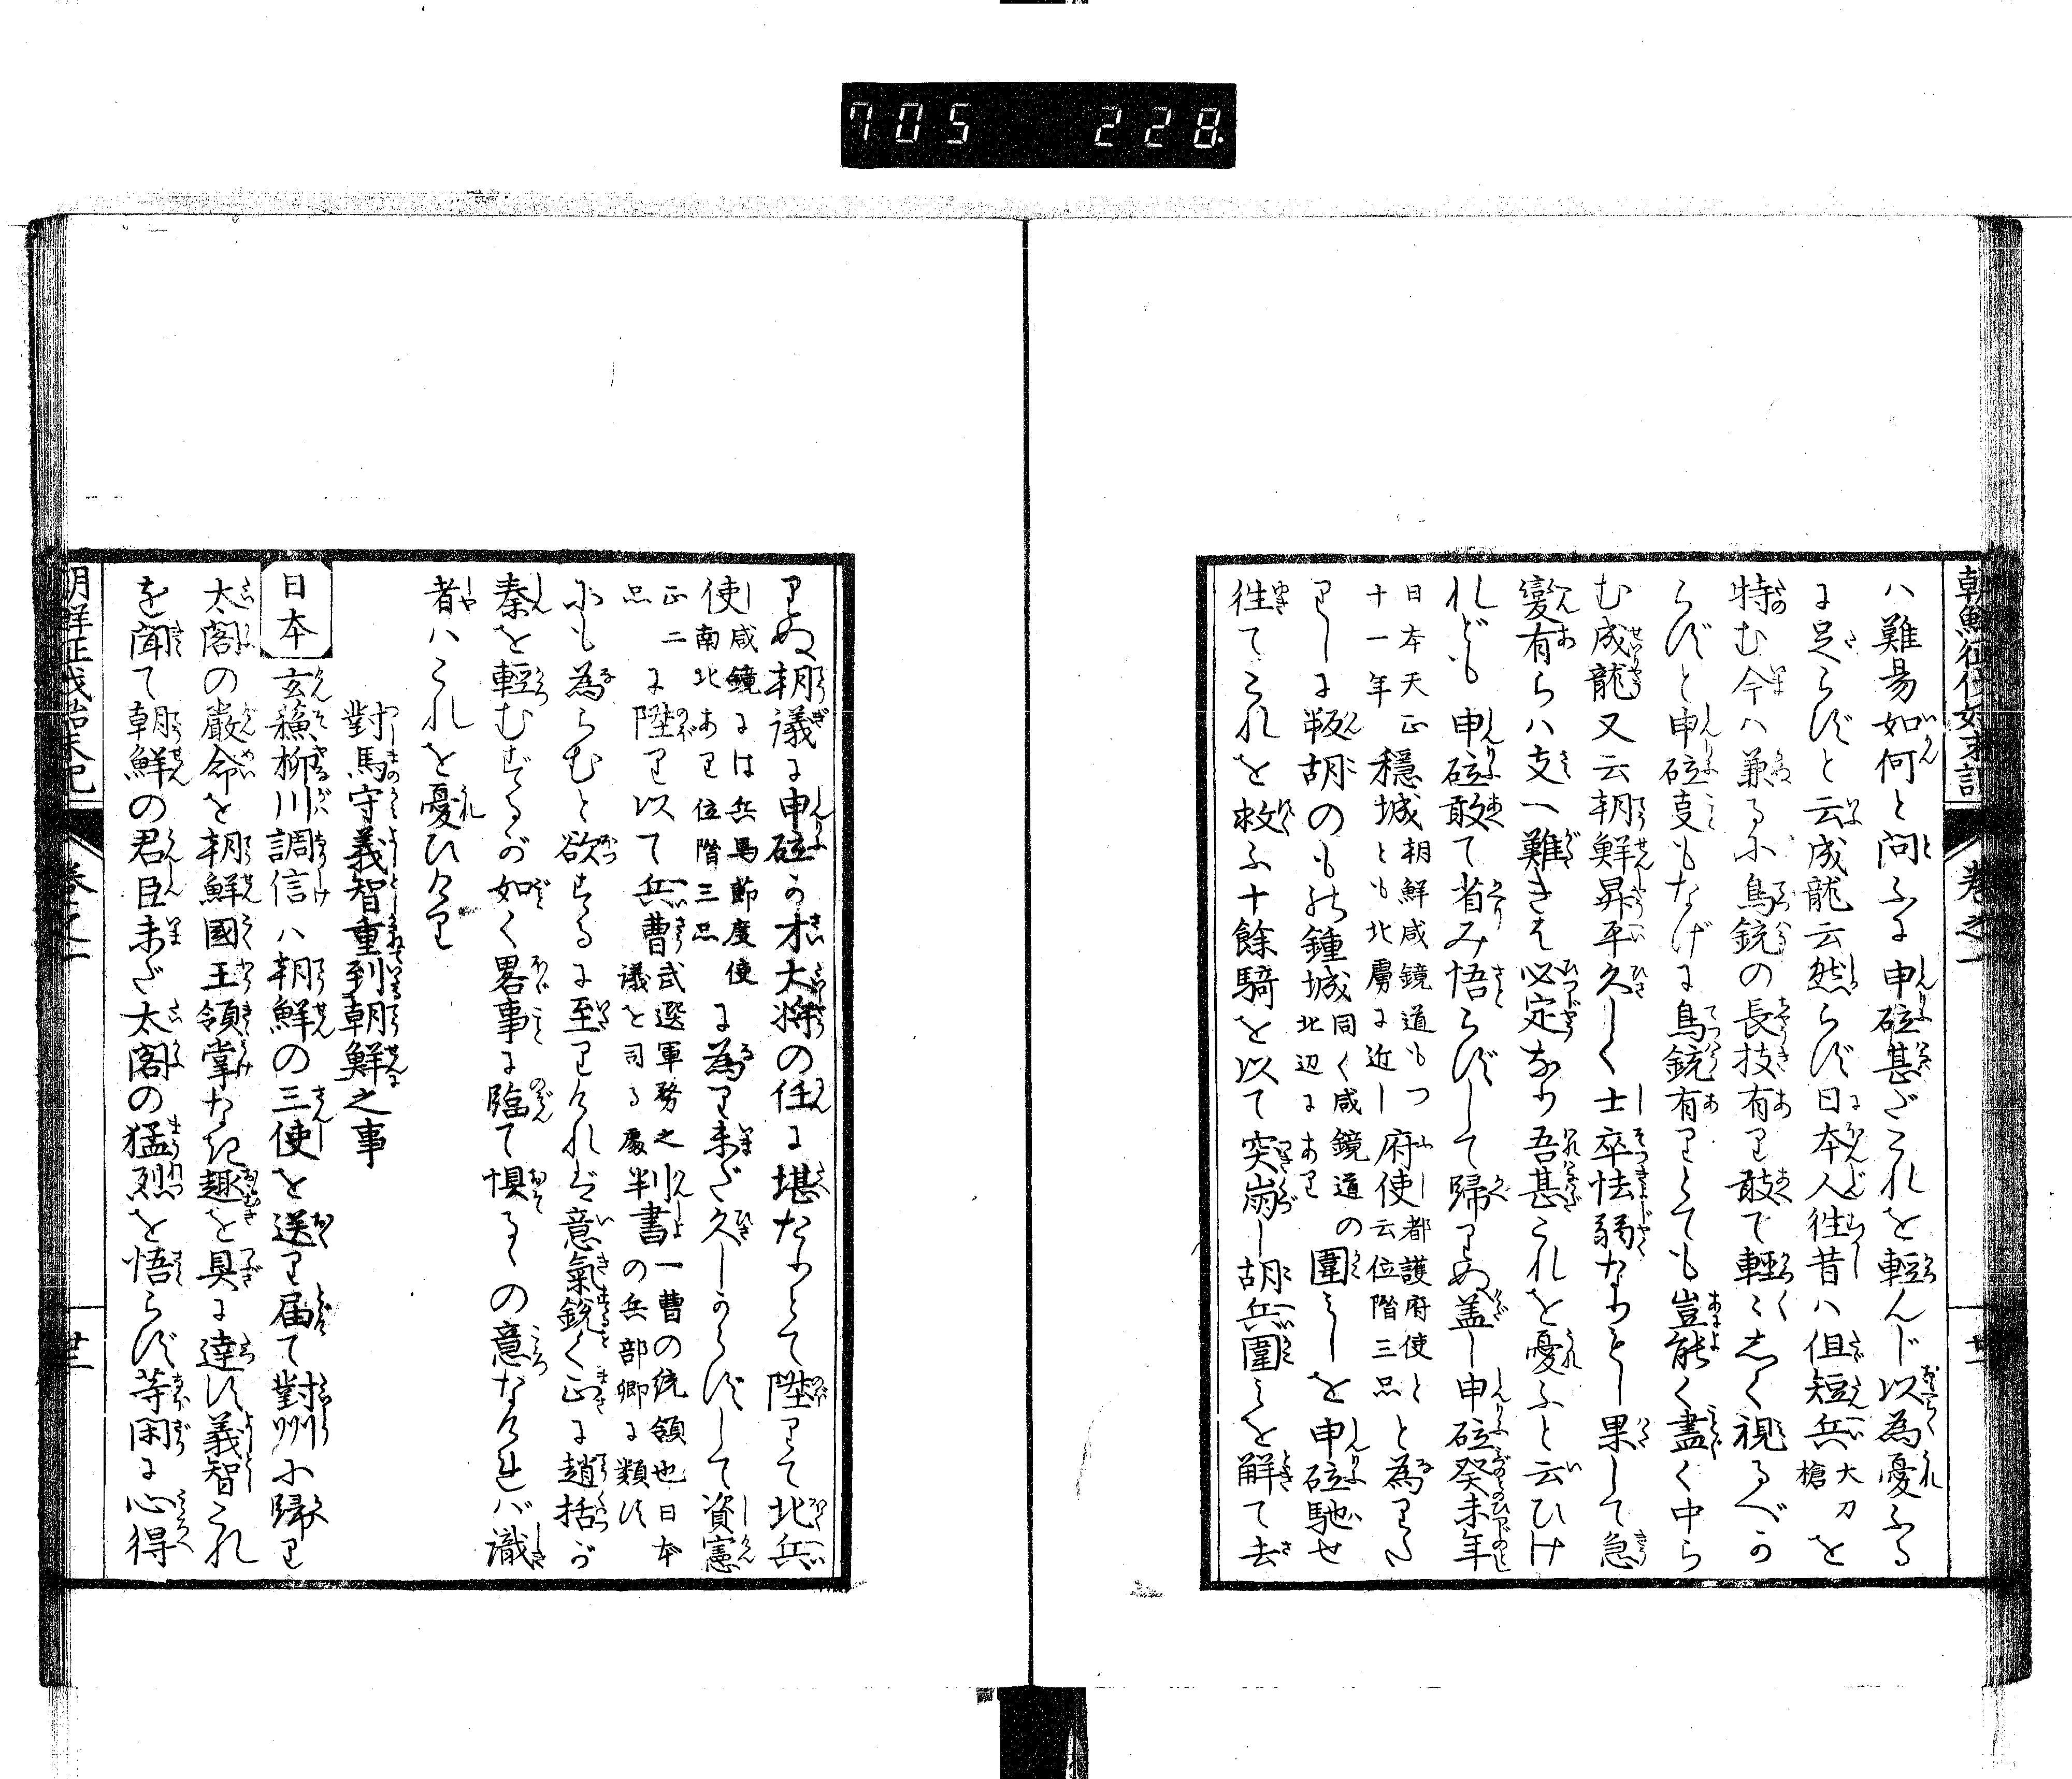 705 228
朝鮮征伐始末記 巻之一 廿一
ハ難易如何と問ふに申砬甚だこれを軽んじ以為憂ふる
に足らずと云成龍云然らず日本人往昔ハ但短兵大刀槍を
恃む今ハ兼るに鳥銃の長技有り敢て軽〻しく視るべか
らずと申砬支もなげに鳥銃有りとても豈能く盡く中ら
む成龍又云朝鮮昇平久しく士卒怯弱なりもし果して急
變有らハ支へ難きこと必定なり吾甚これを憂ふと云ひけ
れども申砬敢て省み悟らずして歸りぬ盖し申砬癸未年
日本天正十一年穩城朝鮮咸鏡道もつとも北虜に近し府使都護府使と云位階三品と為りた
りしに叛胡のもの鍾城同く咸鏡道の北辺にあり圍みしを申砬馳せ
往てこれを救ふ十餘騎を以て突崩し胡兵圍みを解て去
りぬ朝議に申砬の才大将の任に堪たりとて陞りて北兵
使咸鏡には兵馬節度使南北あり位階三品に為り未だ久しからずして資憲
正二品に陞り以て兵曹武選軍務之議を司る處判書一曹の統領也日本の兵部卿に類す
にも為らむと欲するに至りければ意氣鋭く正に趙括が
秦を軽むずるが如く畧事に臨て惧るゝの意なければ識
者ハこれを憂ひけり
對馬守義智重到朝鮮之事
日本 玄蘓柳川調信ハ朝鮮の三使を送り届て對州に歸り
太閤の嚴命を朝鮮國王領掌なき趣を具に達す義智これ
を聞て朝鮮の君臣未だ太閤の猛烈を悟らず等閑に心得
朝鮮征伐始末記 巻之一 廿二